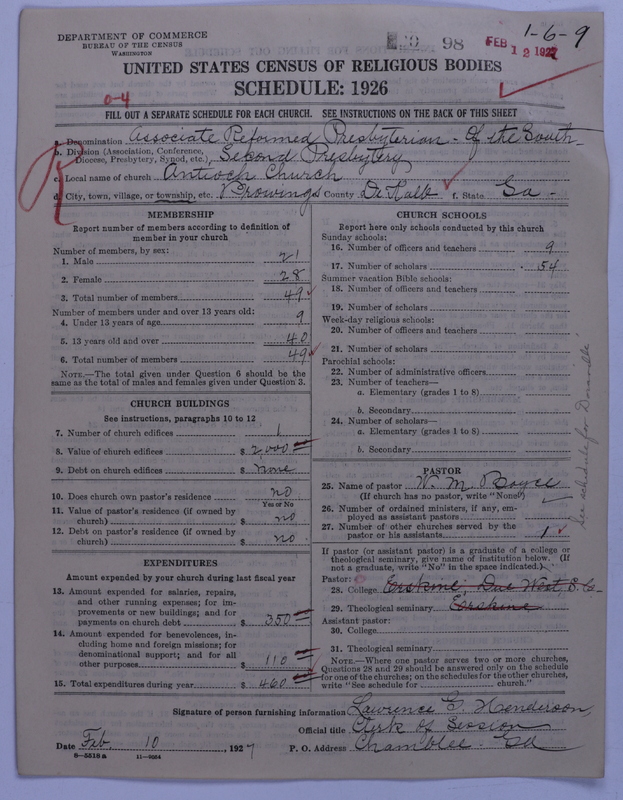 DEPARTMENT OF COMMERCE
BUREAU OF THE CENSUS
WASHINGTON
98
FEB 12 1927
1-6-9
UNITED STATES CENSUS OF RELIGIOUS BODIES
SCHEDULE: 1926
0-4
FILL OUT A SEPARATE SCHEDULE FOR EACH CHURCH. SEE INSTRUCTIONS ON THE BACK OF THIS SHEET
a. Denomination Associate Reformed Presbyterian - Of the South -
b. Division (Association, Conference, Diocese, Presbytery, Synod, etc.) Second Presbytery
c. Local name of church Antioch Church
d. City, town, village, or township, etc. Browings e. County De Kalb f. State Ga -
MEMBERSHIP
Report number of members according to definition of
member in your church
Number of members, by sex:
1. Male 21
2. Female 28
3. Total number of members 49
Number of members under and over 13 years old:
4. Under 13 years of age 9
5. 13 years old and over 40
6. Total number of members 49
NOTE.—The total given under Question 6 should be
same as the total of males and females given under Question 3.
CHURCH BUILDINGS
See instructions, paragraphs 10 to 12
7. Number of church edifices 1
8. Value of church edifices $ 2,000
9. Debt on church edifices $ none
10. Does church own pastor's residence no
Yes or No
11. Value of pastor's residence (if owned by
church) $ no
12. Debt on pastor's residence (if owned by
church) $ no
EXPENDITURES
Amount expended by your church during last fiscal year
13. Amount expended for salaries, repairs,
and other running expenses; for im-
provements or new buildings; and for
payments on church debt $ 350
14. Amount expended for benevolences, in-
cluding home and foreign missions; for
denominational support; and for all
other purposes $ 110
15. Total expenditures during year $ 460
CHURCH SCHOOLS
Report here only schools conducted by this church
Sunday schools:
16. Number of officers and teachers 9
17. Number of scholars 54
Summer vacation Bible schools:
18. Number of officers and teachers
19. Number of scholars
Week-day religious schools:
20. Number of officers and teachers
21. Number of scholars
Parochial schools:
22. Number of administrative officers
23. Number of teachers—
a. Elementary (grades 1 to 8)
b. Secondary
24. Number of scholars—
a. Elementary (grades 1 to 8)
b. Secondary
PASTOR
25. Name of pastor W. M. Boyce
(If church has no pastor, write "None")
26. Number of ordained ministers, if any, em-
ployed as assistant pastors
27. Number of other churches served by the
pastor or his assistants 1
If pastor (or assistant pastor) is a graduate of a college or
theological seminary, give name of institution below. (If
not a graduate, write "No" in the space indicated.)
Pastor:
28. College Erskine, Due West S.C.
29. Theological seminary Erskine
Assistant pastor:
30. College
31. Theological seminary
NOTE.—Where one pastor serves two or more churches,
Questions 28 and 29 should be answered only on the schedule
for one of the churches; on the schedules for the other churches,
write "See schedule for ______ church."
See schedule for Doraville
Signature of person furnishing information Lawrence E. Henderson,
Official title Clerk of Session
Date Feb. 10, 1927 P. O. Address Chamblee - Ga
8-5518 a 11-9664